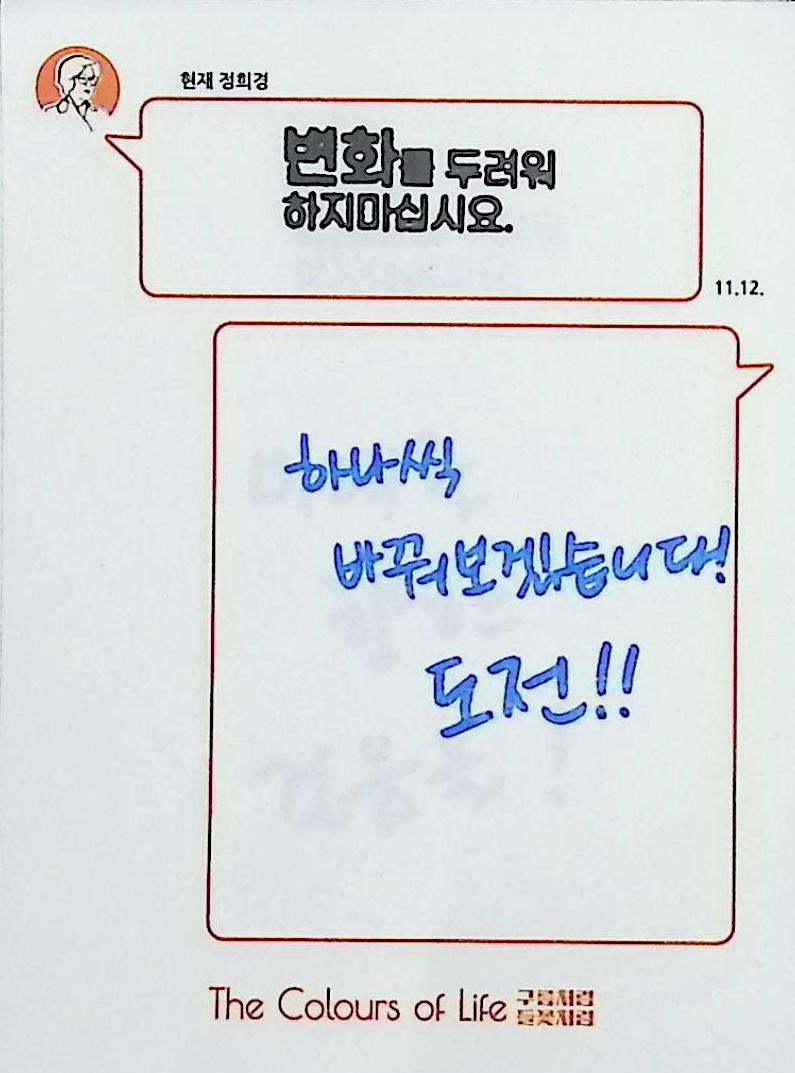 현재 정희경
변화를 두려워
하지마십시요.
11.12.
하나씩
바꿔보겠습니다!
도전!!
The Colours of Life 구름처럼
들꽃처럼